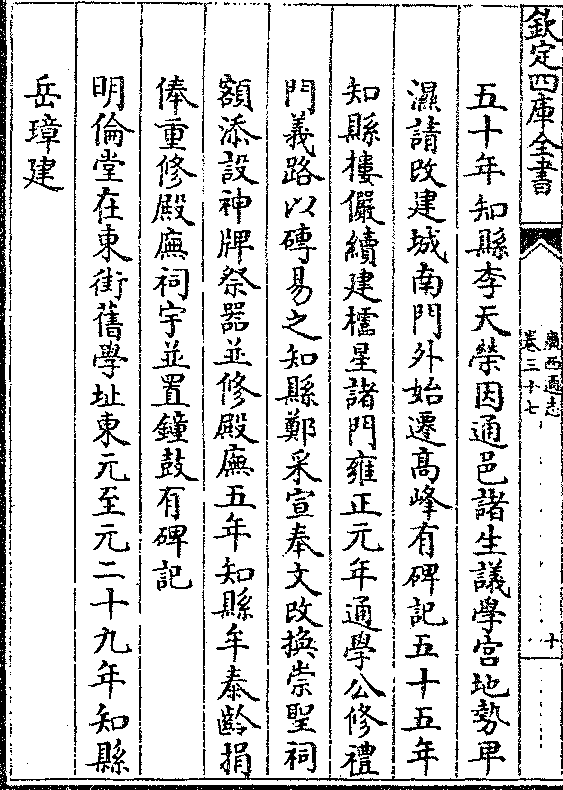 欽定四庫全書
廣西通志
卷三十七
十
五十年知縣李天榮因通邑諸生議學宮地勢卑
濕請改建城南門外始遷髙峰有碑記五十五年
知縣樓儼續建櫺星諸門雍正元年通學公修禮
門義路以磚易之知縣鄭采宣奉文改換崇聖祠
額添設神牌祭器並修殿廡五年知縣牟泰齡捐
俸重修殿廡祠宇並置鐘鼓有碑記
明倫堂在東街舊學址東元至元二十九年知縣
岳璋建